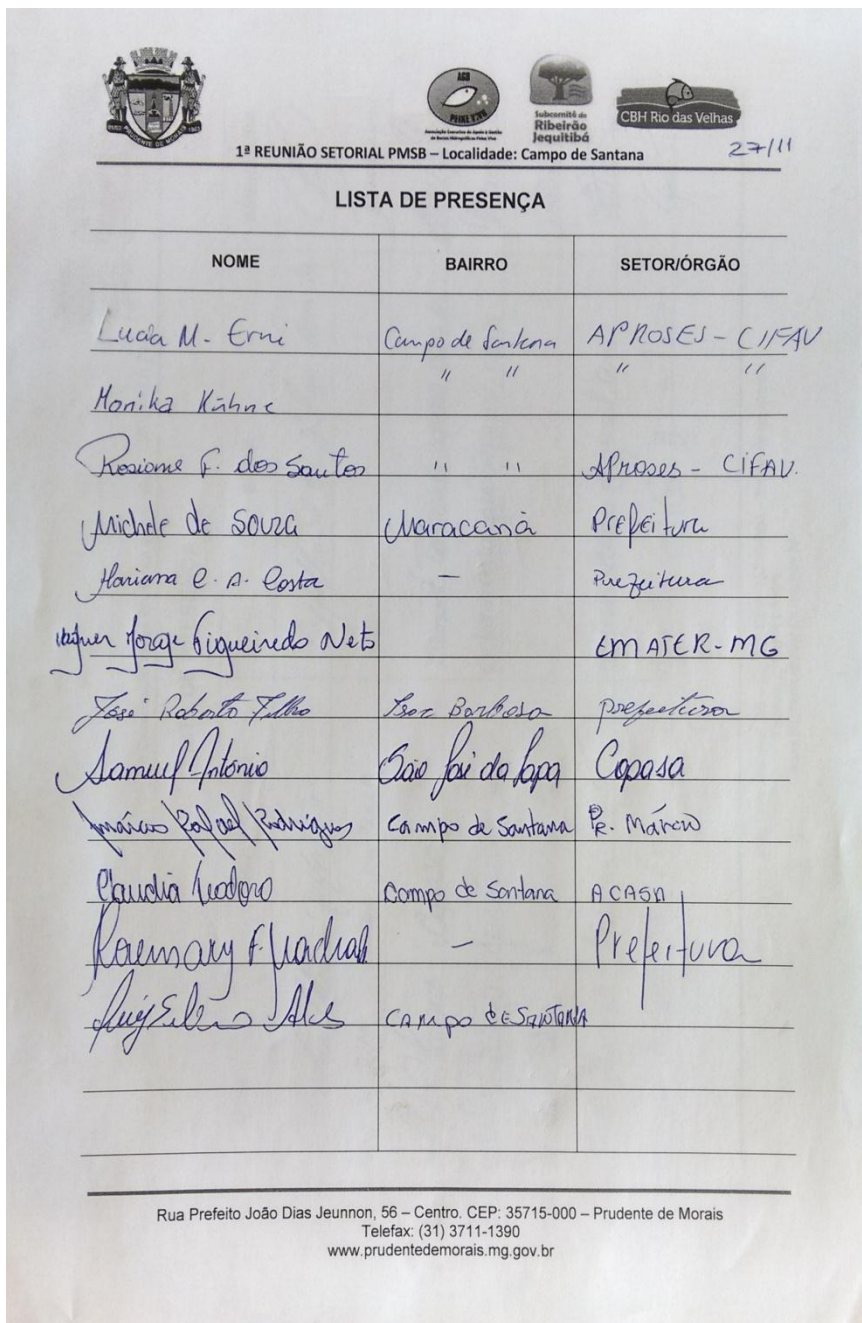 AGB
PEIXE VIVO
Subcomitê do
Ribeirão
Jequitibá
CBH Rio das Velhas
1ª REUNIÃO SETORIAL PMSB – Localidade: Campo de Santana 27/11
LISTA DE PRESENÇA
NOME BAIRRO SETOR/ÓRGÃO
Lucia M. Erni Campo de Santana APROSES - CIFAV
Monika Kühne " " " "
Rosiome F. dos Santos " " Aproses - CIFAV.
Michele de Souza Maracanã Prefeitura
Mariana C. A. Costa – Prefeitura
Jorge Figueiredo Neto EMATER-MG
José Roberto Filho Barbosa prefeitura
Samuel Antônio São José da Lapa Copasa
Márcio Rafael Rodrigues Campo de Santana PR. Márcio
Claudia Teodoro Campo de Santana ACASA
Rosemary F. – Prefeitura
Alves CAMPO DE SANTANA
Rua Prefeito João Dias Jeunnon, 56 – Centro. CEP: 35715-000 – Prudente de Morais
Telefax: (31) 3711-1390
www.prudentedemorais.mg.gov.br